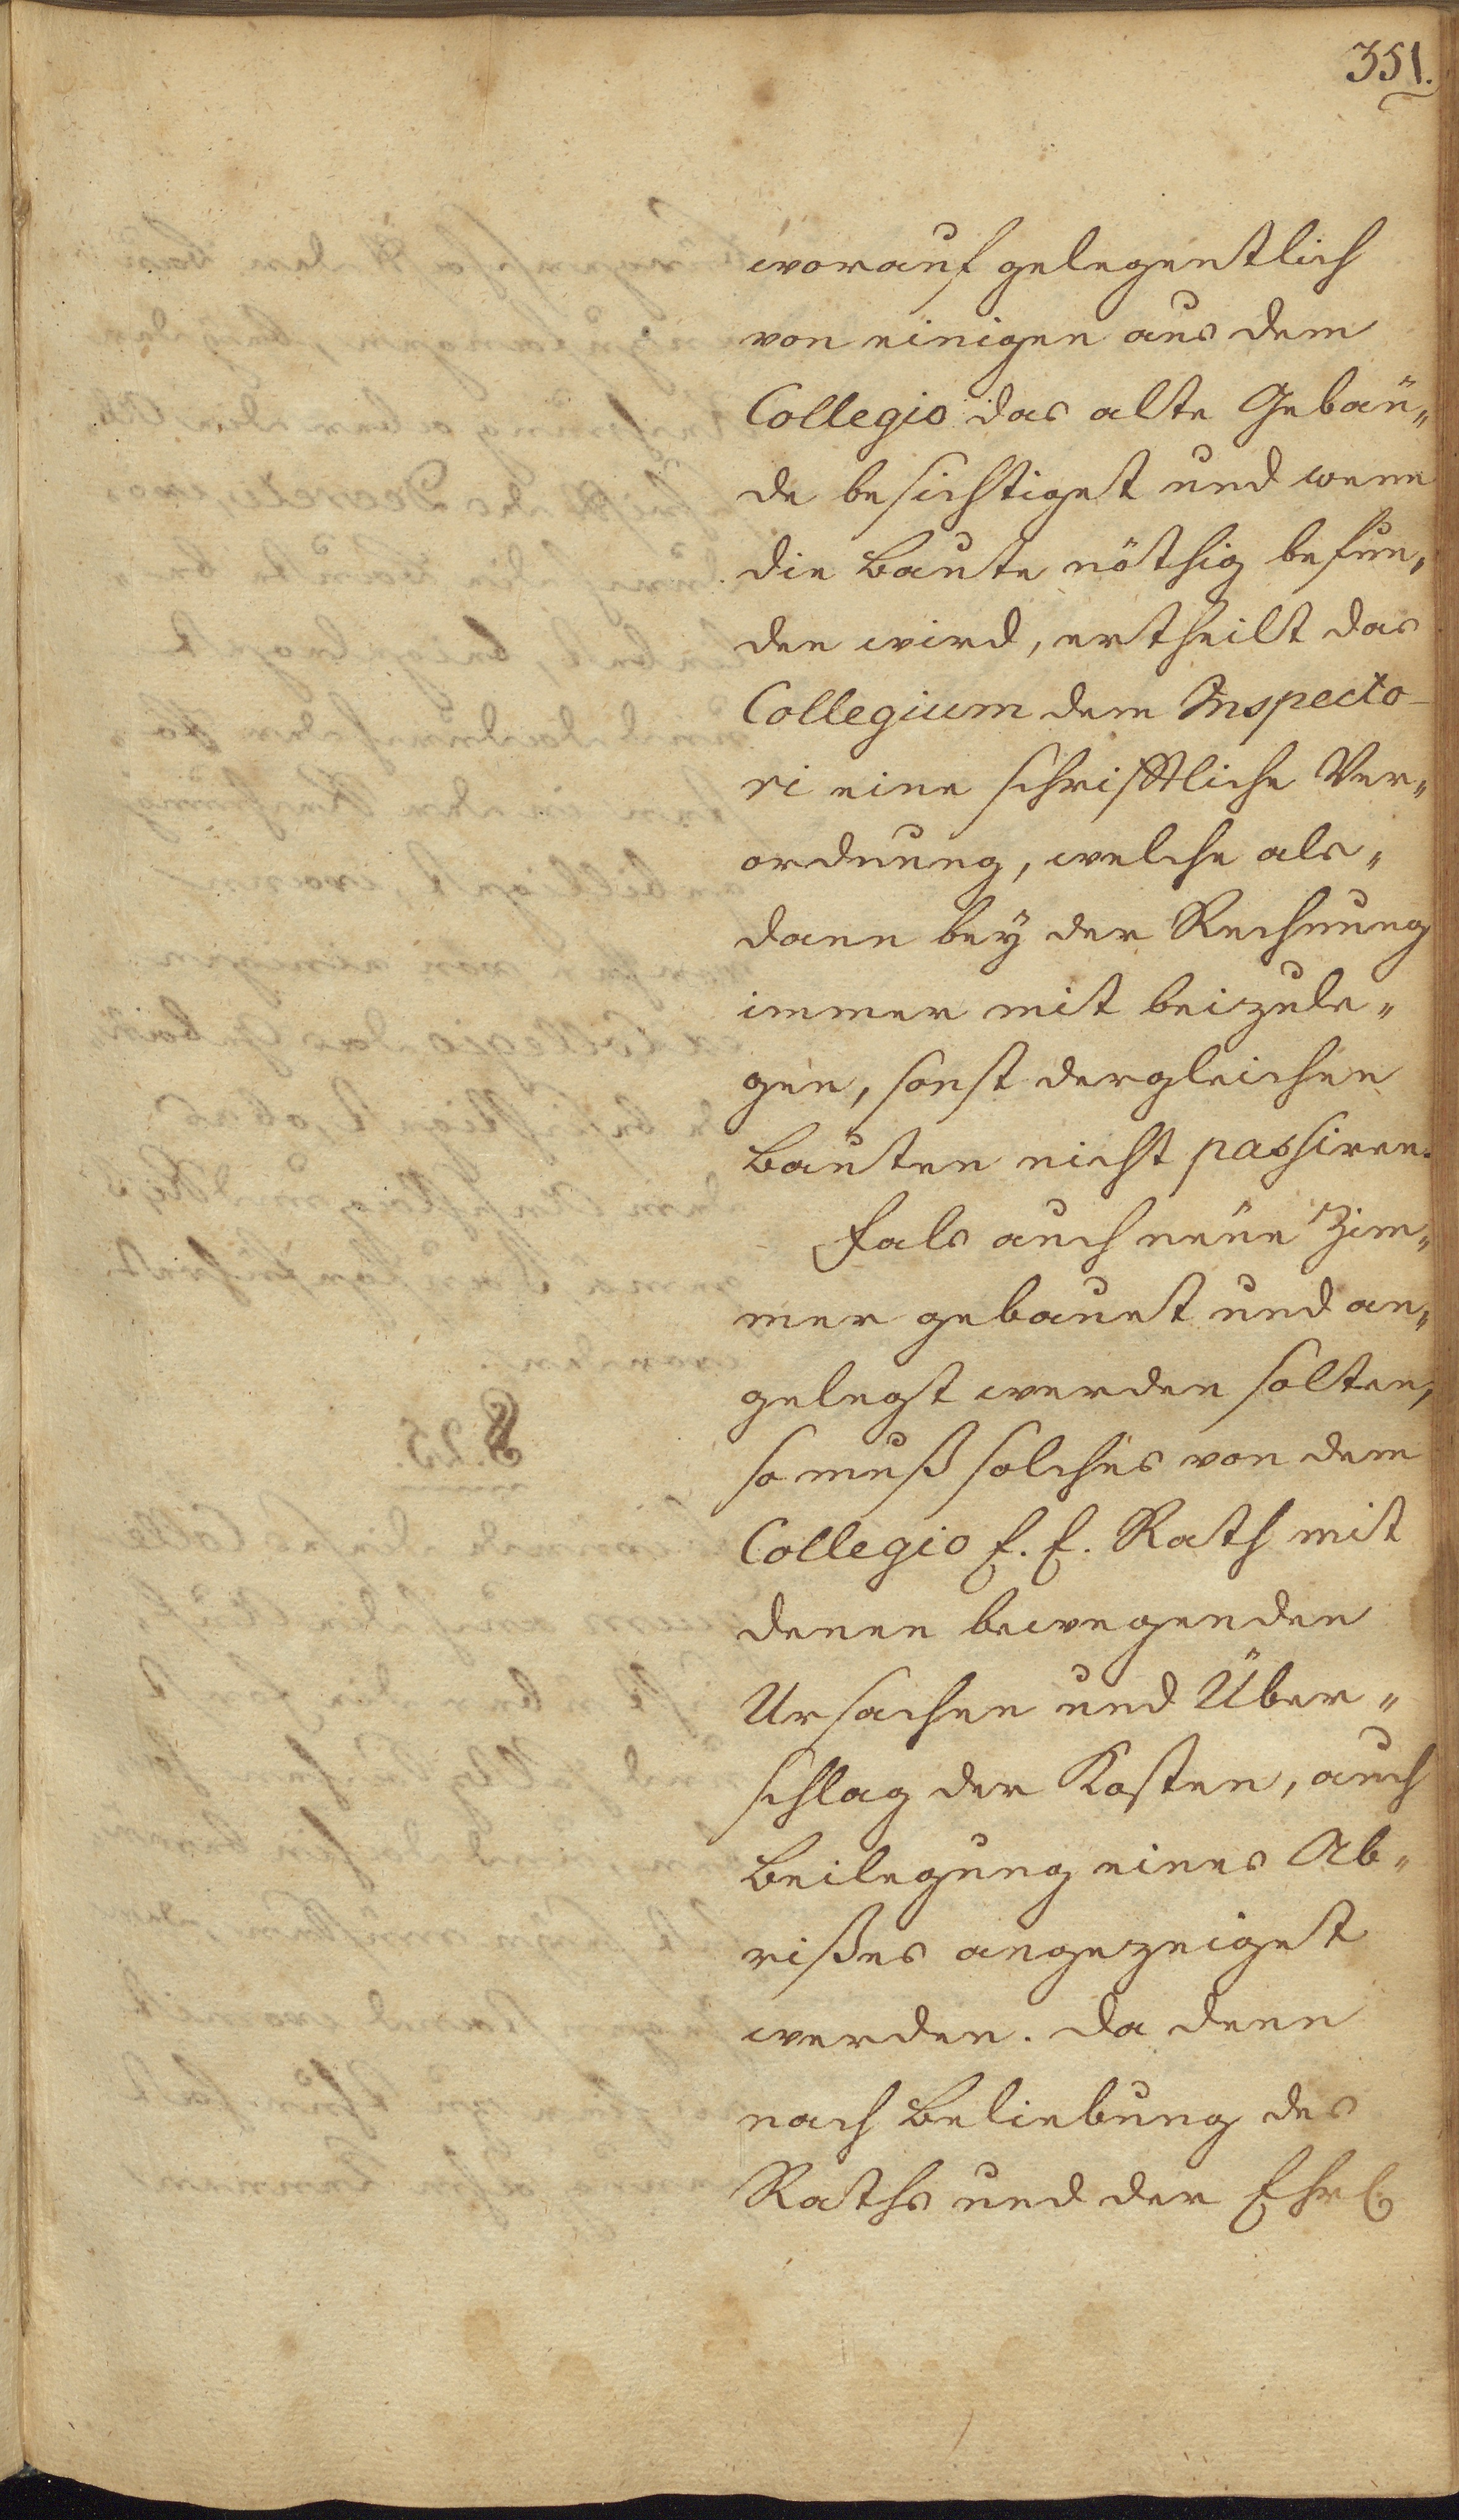 351.
worauf gelegentlich
von einigen aus dem
Collegio das alte Gebäu„
de besichtiget und wenn
die Baute nöthig befun„
den wird, ertheilt das
Collegium dem Inspecto-
ri eine schrifftliche Ver„
ordnung, welche als„
dann bey der Rechnung
immer mit beizule„
gen, sonst dergleichen
Bauten nicht passiren.
Fals auch neue Zim„
mer gebauet und an„
gelegt werden solten,
so muß solches von dem
Collegio E. E. Rath mit
denen bewegenden
Ursachen und Über„
schlag der Kosten, auch
Beilegung eines Ab„
rißes angezeiget
werden. Da denn
nach Beliebung des
Raths und der Ehrl